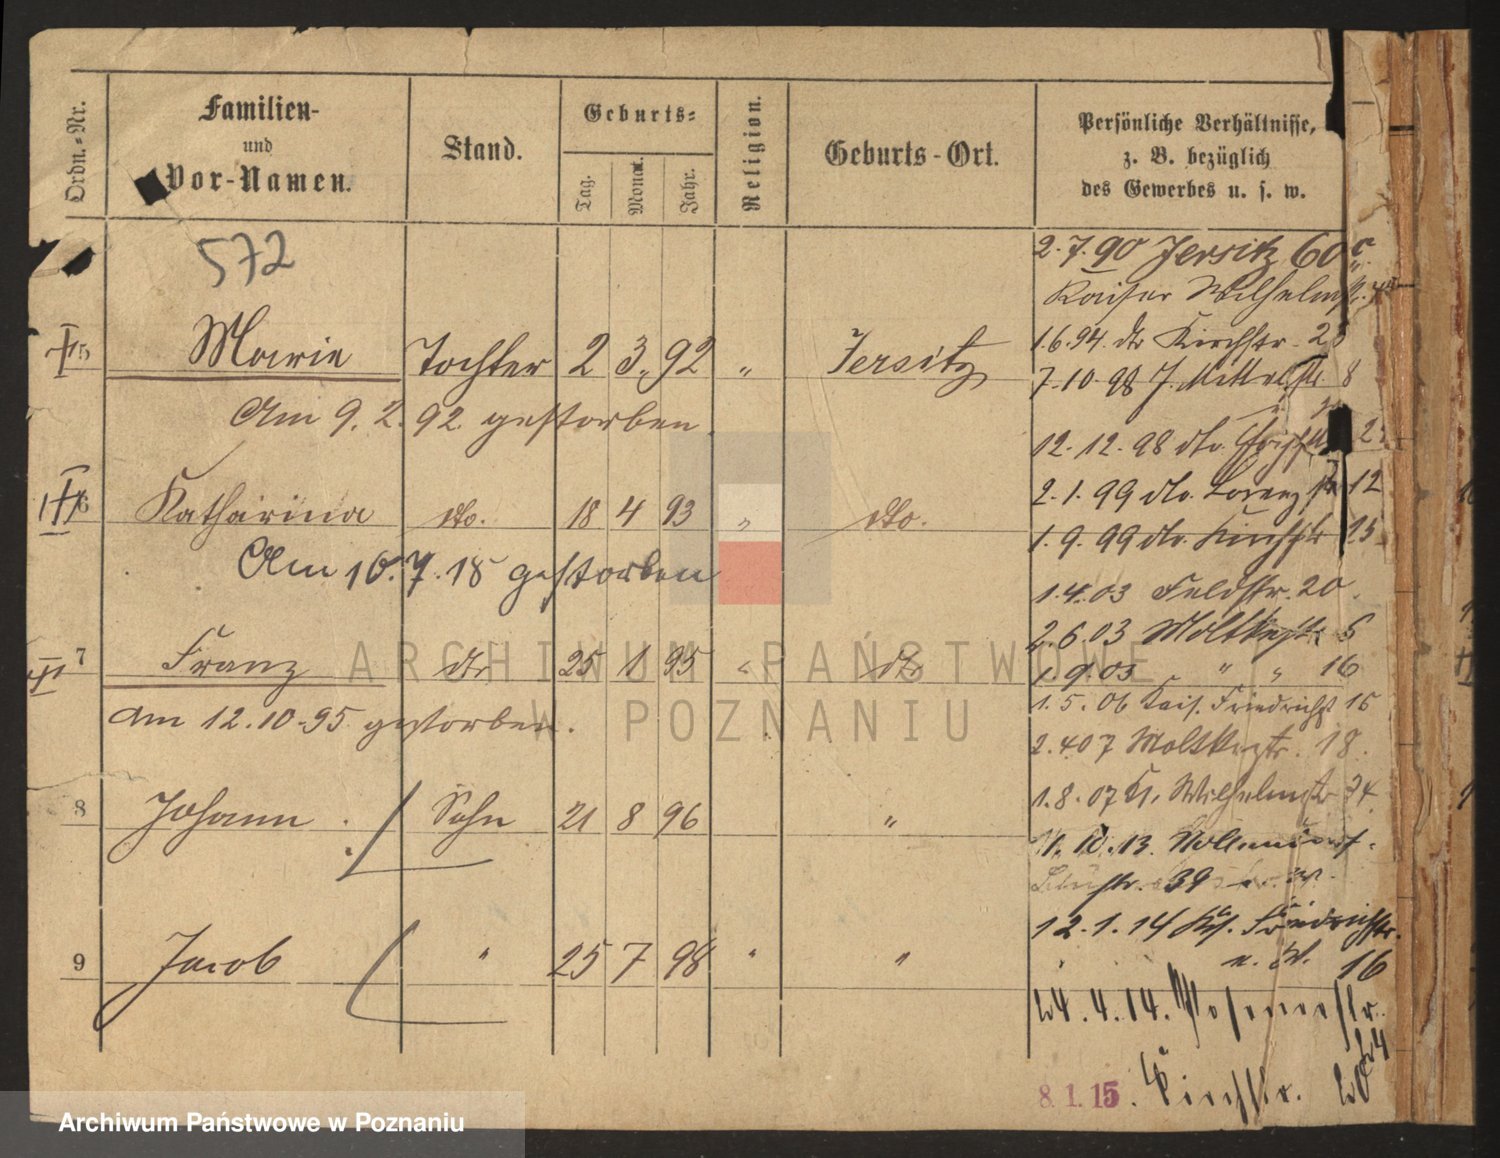 Ordn.-Nr.
Familien-
und
Vor-Namen.
Stand.
Geburts-
Tag.
Monat.
Jahr.
Religion.
Geburts-Ort.
Persönliche Verhältnisse,
z. B. bezüglich
des Gewerbes u. s. w.
572
5 Marie Tochter 2 3. 92 " Jersitz
Am 9. 2. 92 gestorben
6 Katharina dto. 18 4 93 " dto.
Am 10. 7. 18 gestorben
7 Franz dto 25 1 95 " dto
am 12.10.95 gestorben.
8 Johann Sohn 21 8 96 "
9 Jacob " 25 7 98 " "
2.7.90 Jersitz 60
Kaiser Wilhelmstr.
1.6.94. dto Kirchstr. 23
7.10.98 J. Mittelstr. 8
12.12.98 dto.
2.1.99 dto. Lorenzstr 12
1.9.99 dto. Kirchstr 15
1.4.03 Feldstr. 20.
2.6.03 Moltkestr 5
1.9.03 " " 16
1.5.06 Kais. Friedrichst 15
2.4.07 Moltkestr. 18.
1.8.07 K. Wilhelmstr 34
11.10.13.
39
12.1.14 Ks. Friedrichstr.
16
24.4.14. Posenerstr.
24
8.1.15. Kirchstr. 20
ARCHIWUM PAŃSTWOWE
W POZNANIU
Archiwum Państwowe w Poznaniu